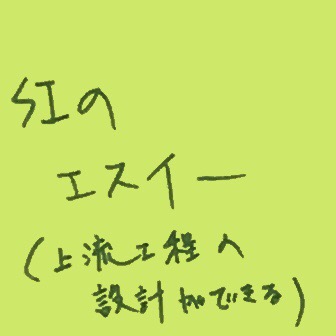 SIの
エスイー
(上流工程の
設計ができる)